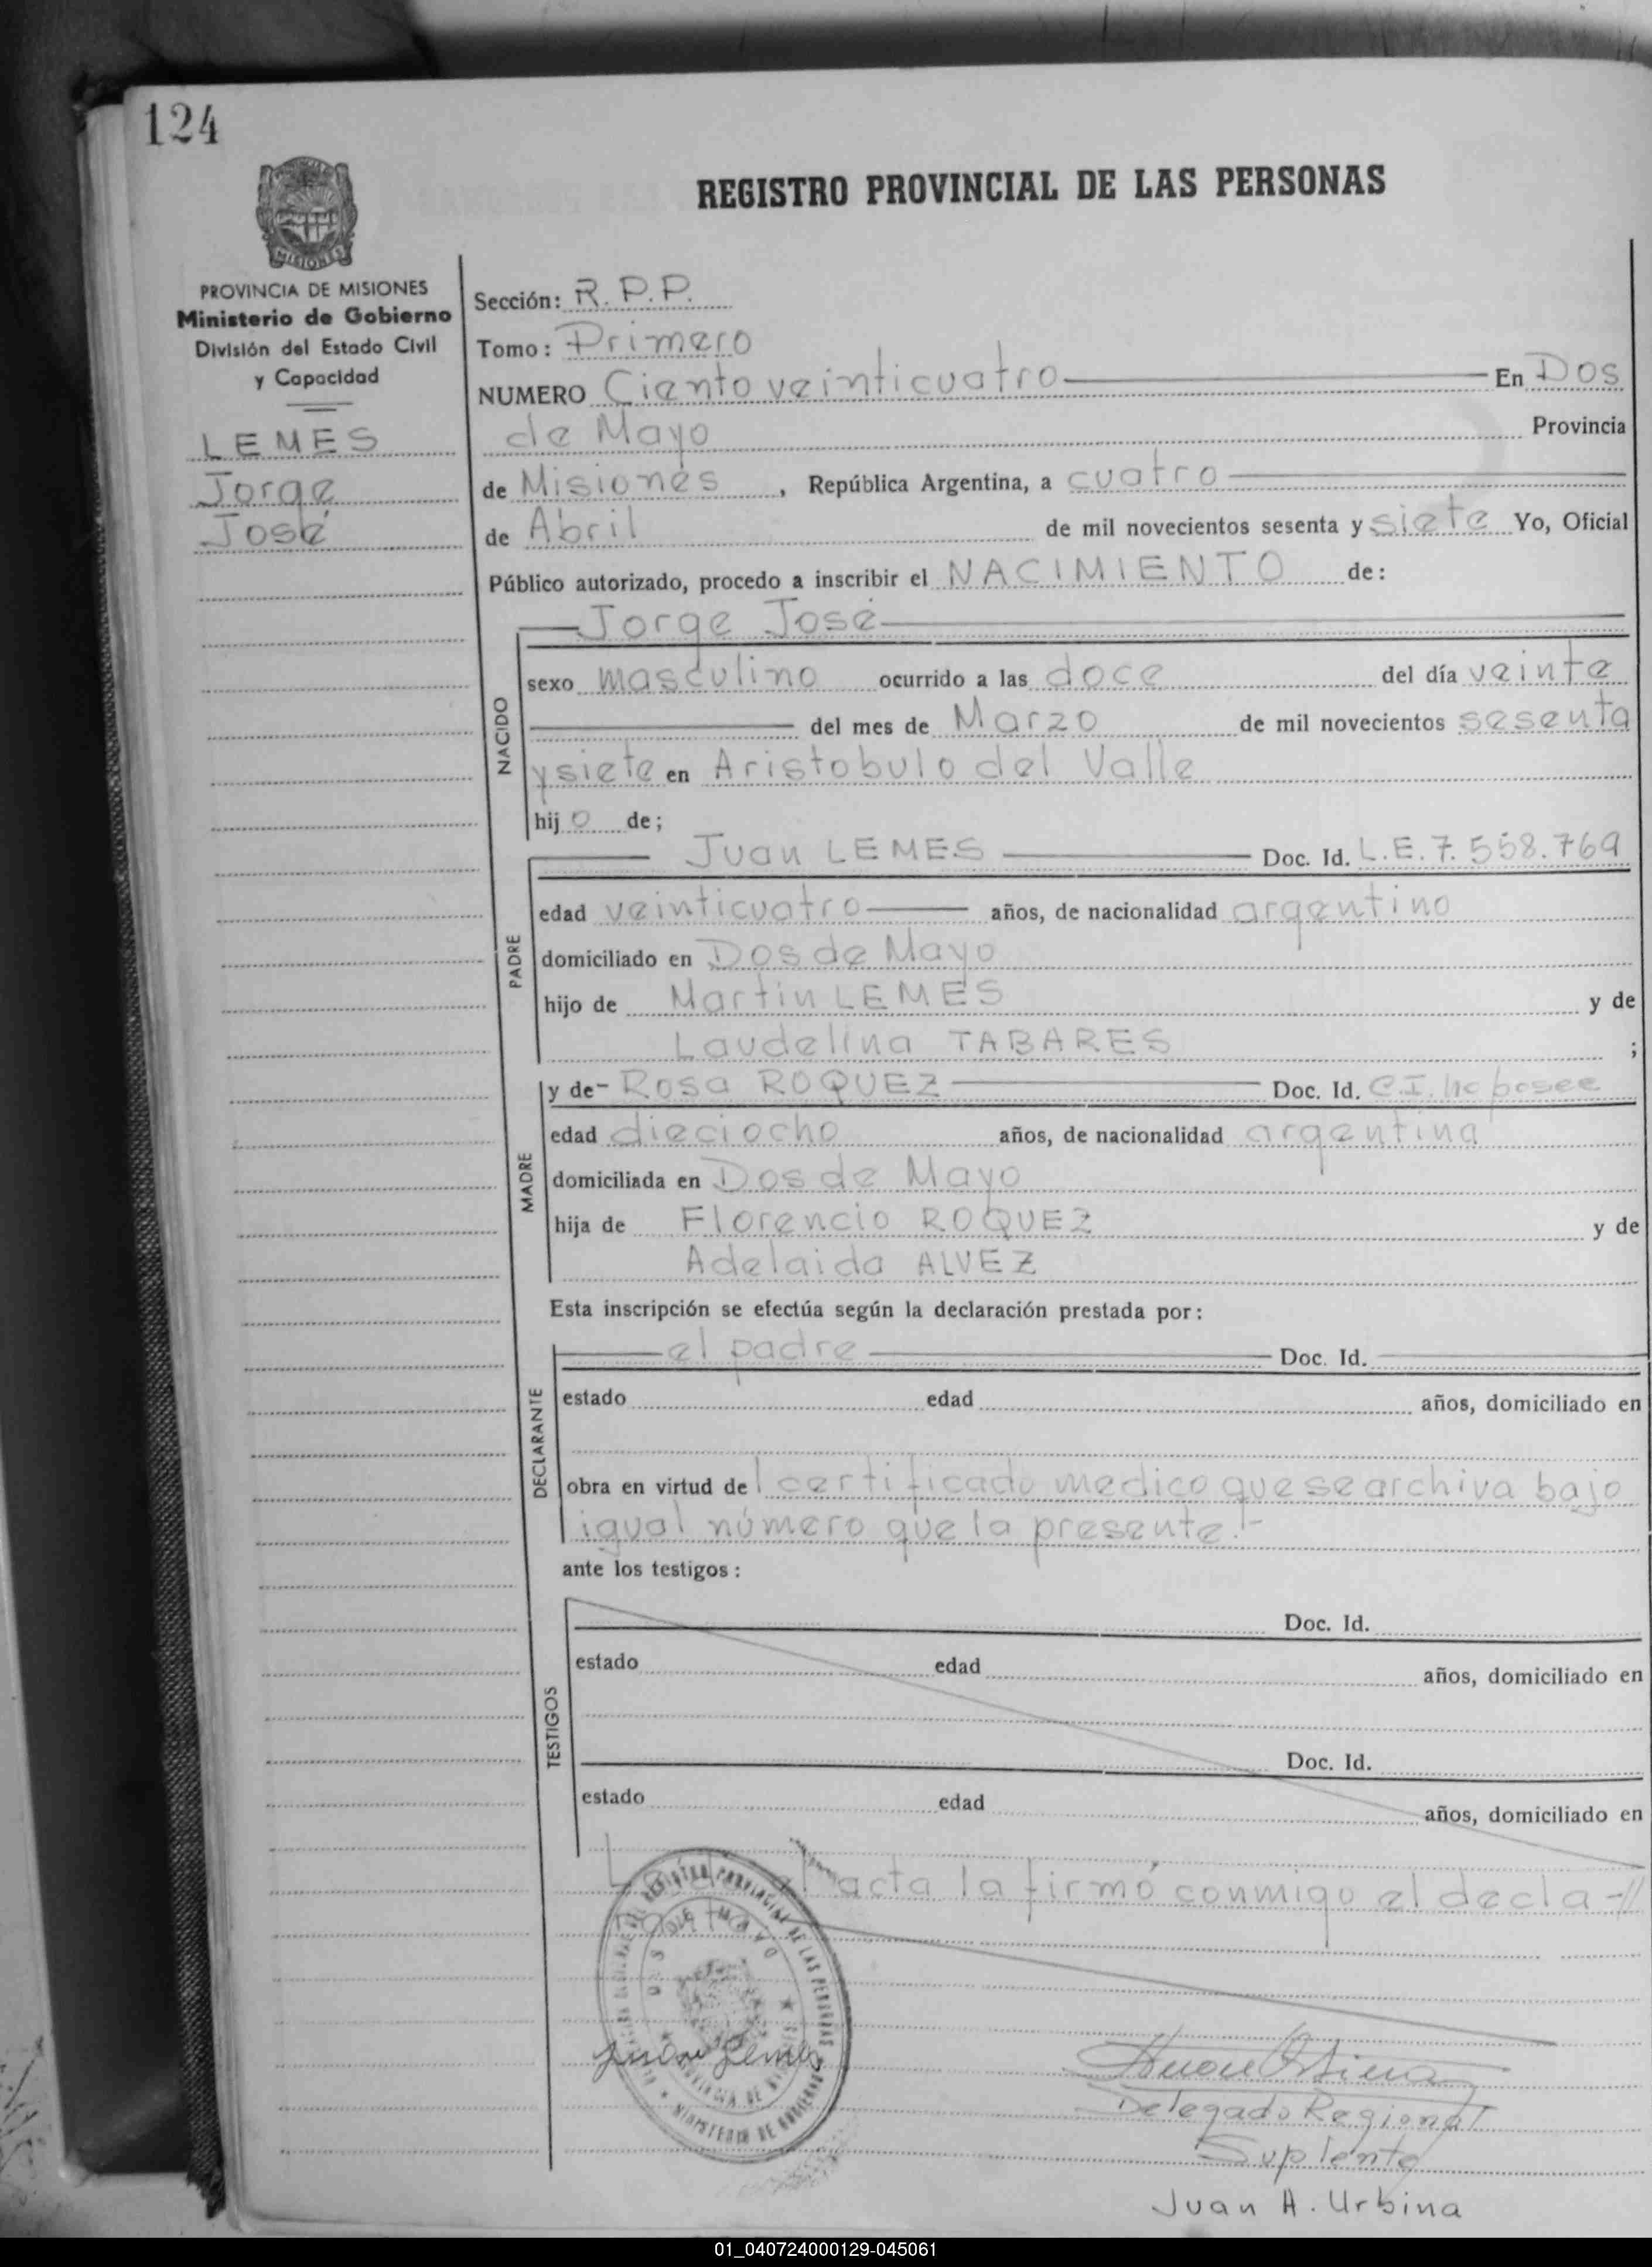 124
REGISTRO PROVINCIAL DE LAS PERSONAS
MISIONES
PROVINCIA DE MISIONES
Ministerio de Gobierno
División del Estado Civil
y Capacidad
LEMES
Jorge
José
Sección: R. P.P.
Tomo: Primero
NUMERO Ciento veinticuatro En Dos
de Mayo Provincia
de Misiones, República Argentina, a cuatro
de Abril de mil novecientos sesenta y siete Yo, Oficial
Público autorizado, procedo a inscribir el NACIMIENTO de:
NACIDO
Jorge José
sexo masculino ocurrido a las doce del día veinte
del mes de Marzo de mil novecientos sesenta
y siete en Aristobulo del Valle
hijo de;
PADRE
Juan LEMES Doc. Id. L.E. 7.558.769
edad veinticuatro años, de nacionalidad argentino
domiciliado en Dos de Mayo
hijo de Martin LEMES y de
Laudelina TABARES ;
MADRE
y de- Rosa ROQUEZ Doc. Id. C.I. no posee
edad dieciocho años, de nacionalidad argentina
domiciliada en Dos de Mayo
hija de Florencio ROQUEZ y de
Adelaida ALVEZ
Esta inscripción se efectúa según la declaración prestada por:
DECLARANTE
el padre Doc. Id.
estado edad años, domiciliado en
obra en virtud del certificado medico que se archiva bajo
igual número que la presente.-
ante los testigos:
TESTIGOS
Doc. Id.
estado edad años, domiciliado en
Doc. Id.
estado edad años, domiciliado en
acta la firmó conmigo el decla-//
REGISTRO PROVINCIAL DE LAS PERSONAS
DOS DE MAYO
PROVINCIA DE MISIONES
MINISTERIO DE GOBIERNO
Juan Lemes
Delegado Regional
Suplente
Juan A. Urbina
01_040724000129-045061